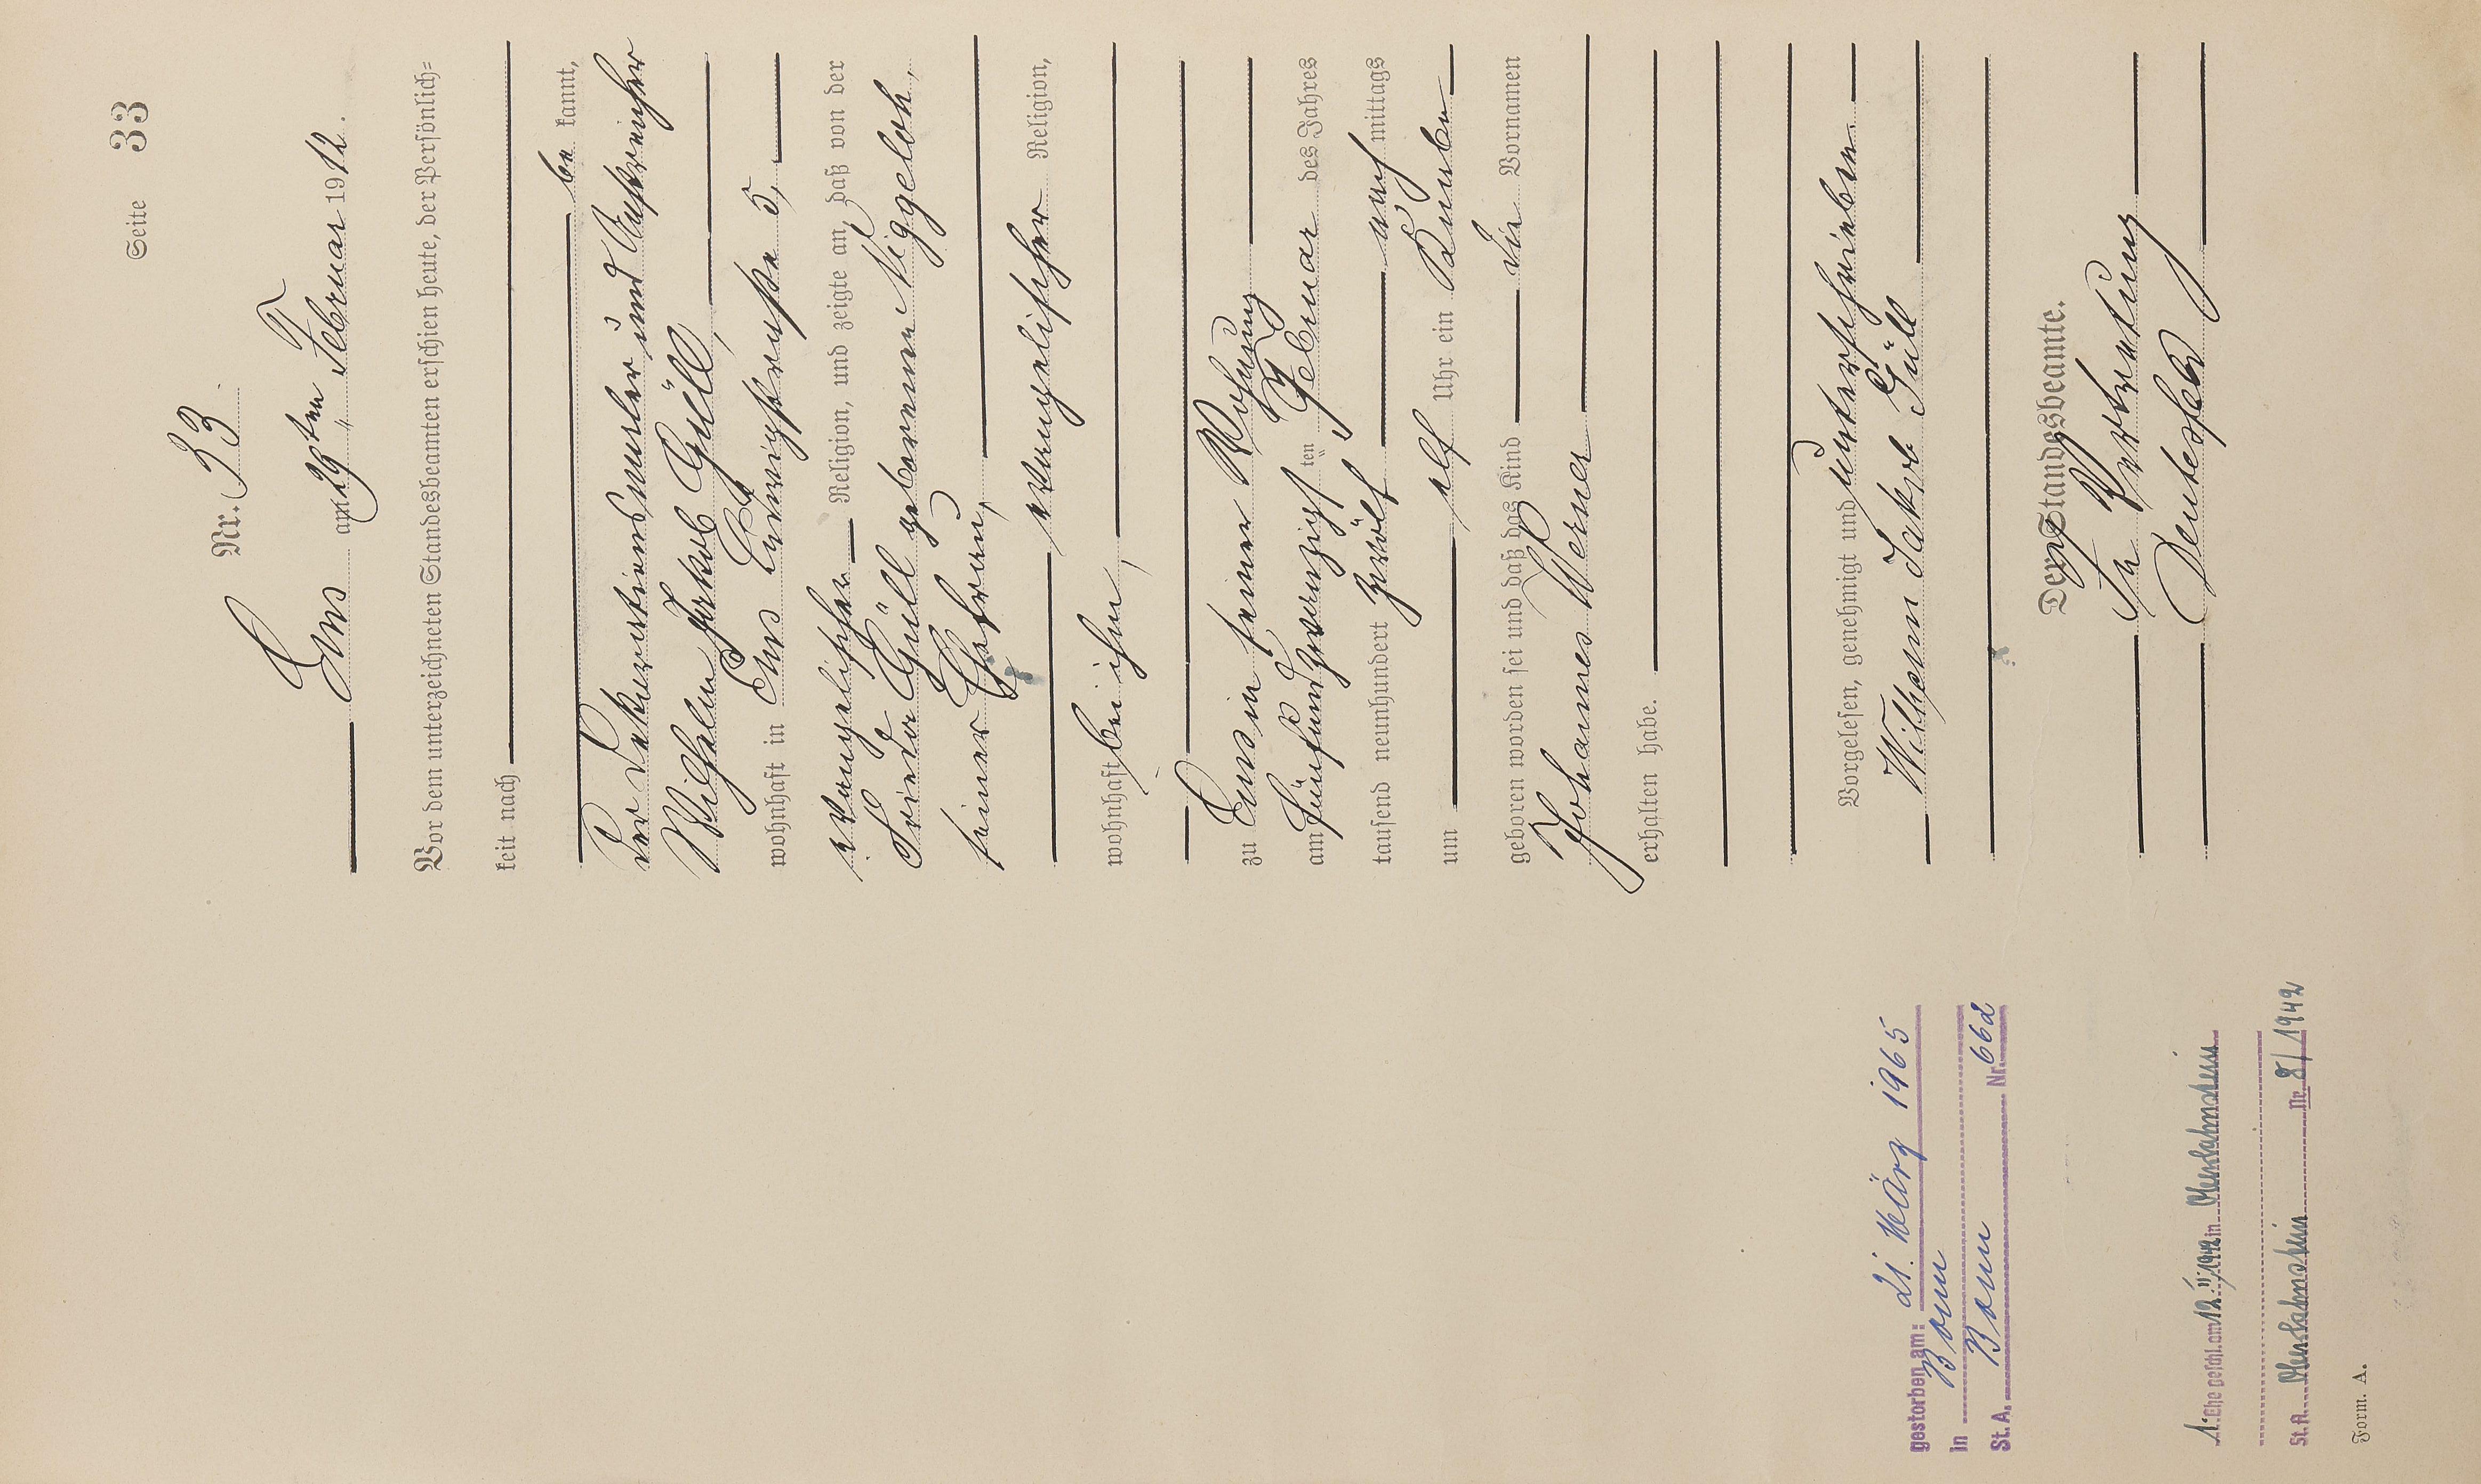 Seite 33
Nr. 33
Ems am 29ten Februar 1912.
Vor dem unterzeichneten Standesbeamten erschien heute, der Persönlich=
keit nach
be kannt,
der Dekorationsmaler und Anstreicher
Wilhelm Jakob Güll,
wohnhaft in Ems Ludwigstraße 5,
evangelischer Religion, und zeigte an, daß von der
Frieda Güll geborenen Niggeloh,
seiner Ehefrau,
evangelischer Religion,
wohnhaft bei ihm,
zu Ems in seiner Wohnung
am fünfundzwanzigsten Februar des Jahres
tausend neunhundert zwölf nach mittags
um elf Uhr ein Knabe
geboren worden sei und daß das Kind die Vornamen
Johannes Werner
erhalten habe.
Vorgelesen, genehmigt und unterschrieben.
Wilhelm Jakob Güll
Der Standesbeamte.
In Vertretung
gestorben am: 21. März 1965
in Bonn
St. A. Bonn Nr. 662
1. Ehe geschl. am 12.11.1942 in Oberlahnstein
St. A. Oberlahnstein Nr. 8/1942
Form. A.